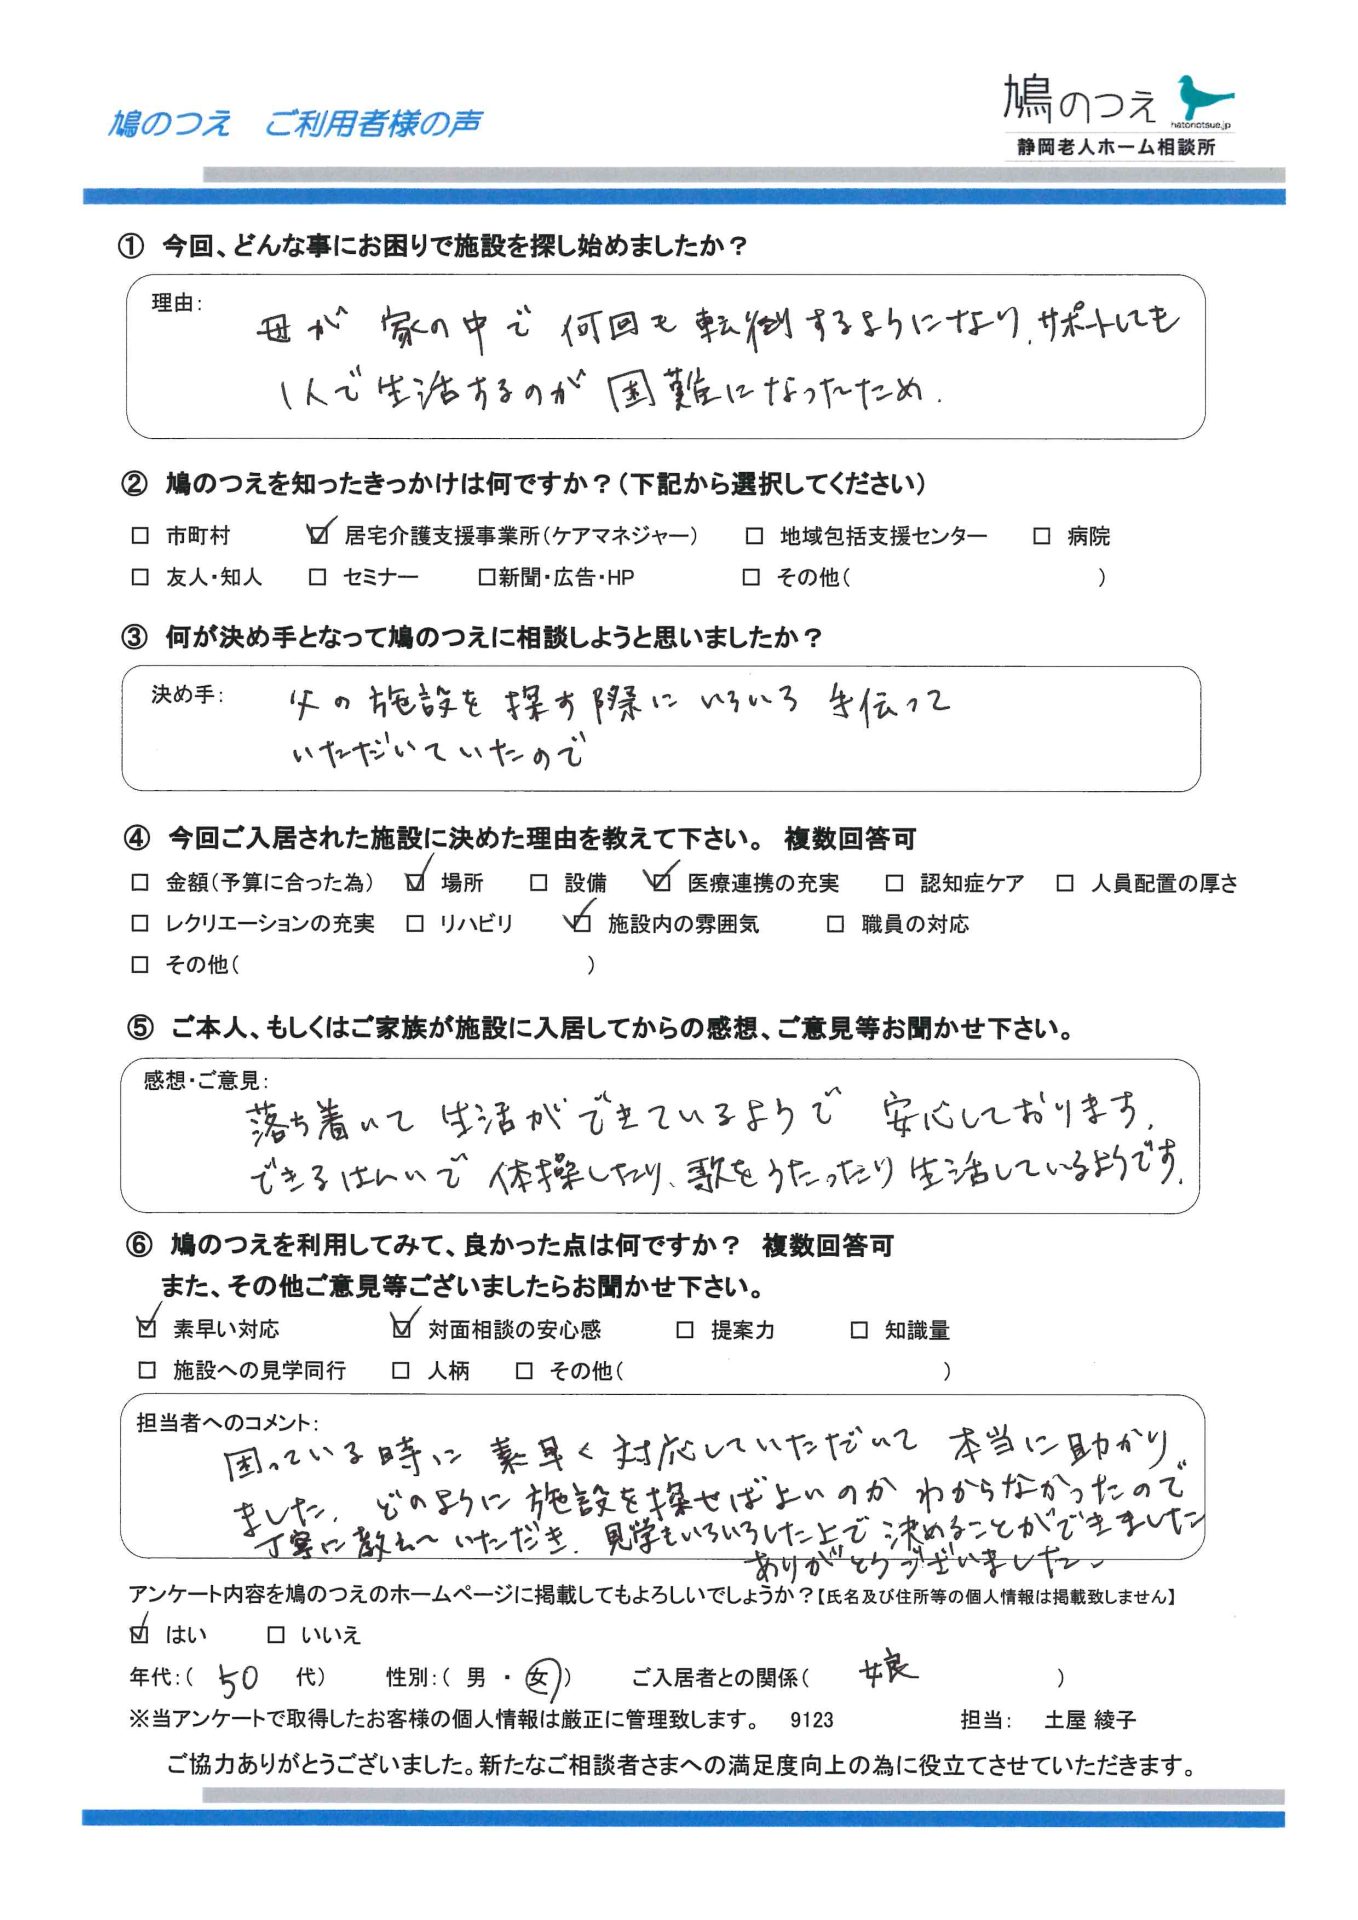 鳩のつえ　ご利用者様の声
鳩のつえ
hatonotsue.jp
静岡老人ホーム相談所
① 今回、どんな事にお困りで施設を探し始めましたか？
理由:
母が 家の中で 何回も転倒するようになり、サポートしても
1人で生活するのが 困難になったため.
② 鳩のつえを知ったきっかけは何ですか？（下記から選択してください）
□ 市町村 ☑ 居宅介護支援事業所（ケアマネジャー） □ 地域包括支援センター □ 病院
□ 友人・知人 □ セミナー □新聞・広告・HP □ その他（ ）
③ 何が決め手となって鳩のつえに相談しようと思いましたか？
決め手:
父の施設を探す際に いろいろ 手伝って
いただいていたので
④ 今回ご入居された施設に決めた理由を教えて下さい。 複数回答可
□ 金額（予算に合った為） ☑ 場所 □ 設備 ☑ 医療連携の充実 □ 認知症ケア □ 人員配置の厚さ
□ レクリエーションの充実 □ リハビリ ☑ 施設内の雰囲気 □ 職員の対応
□ その他（ ）
⑤ ご本人、もしくはご家族が施設に入居してからの感想、ご意見等お聞かせ下さい。
感想・ご意見:
落ち着いて 生活ができているようで 安心しております.
できるはんいで 体操したり、歌をうたったり 生活しているようです.
⑥ 鳩のつえを利用してみて、良かった点は何ですか？ 複数回答可
また、その他ご意見等ございましたらお聞かせ下さい。
☑ 素早い対応 ☑ 対面相談の安心感 □ 提案力 □ 知識量
□ 施設への見学同行 □ 人柄 □ その他（ ）
担当者へのコメント:
困っている時に 素早く対応していただいて 本当に助かり
ました. どのように施設を探せばよいのか わからなかったので
丁寧に教えて いただき. 見学もいろいろした上で決めることができました
ありがとうございました.
アンケート内容を鳩のつえのホームページに掲載してもよろしいでしょうか？【氏名及び住所等の個人情報は掲載致しません】
☑ はい □ いいえ
年代:（ 50 代） 性別:（ 男 ・ 女） ご入居者との関係（ 娘 ）
※当アンケートで取得したお客様の個人情報は厳正に管理致します。 9123 担当: 土屋 綾子
ご協力ありがとうございました。新たなご相談者さまへの満足度向上の為に役立てさせていただきます。